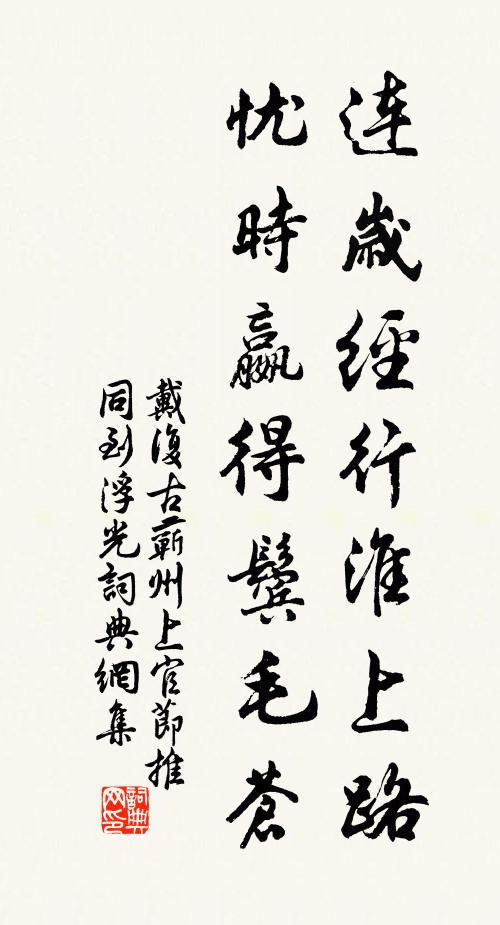 連歲經行淮上路
忧時贏得鬢毛蒼
戴復古蘄州上官節推
同到浮光詞典網集
詞典
网印